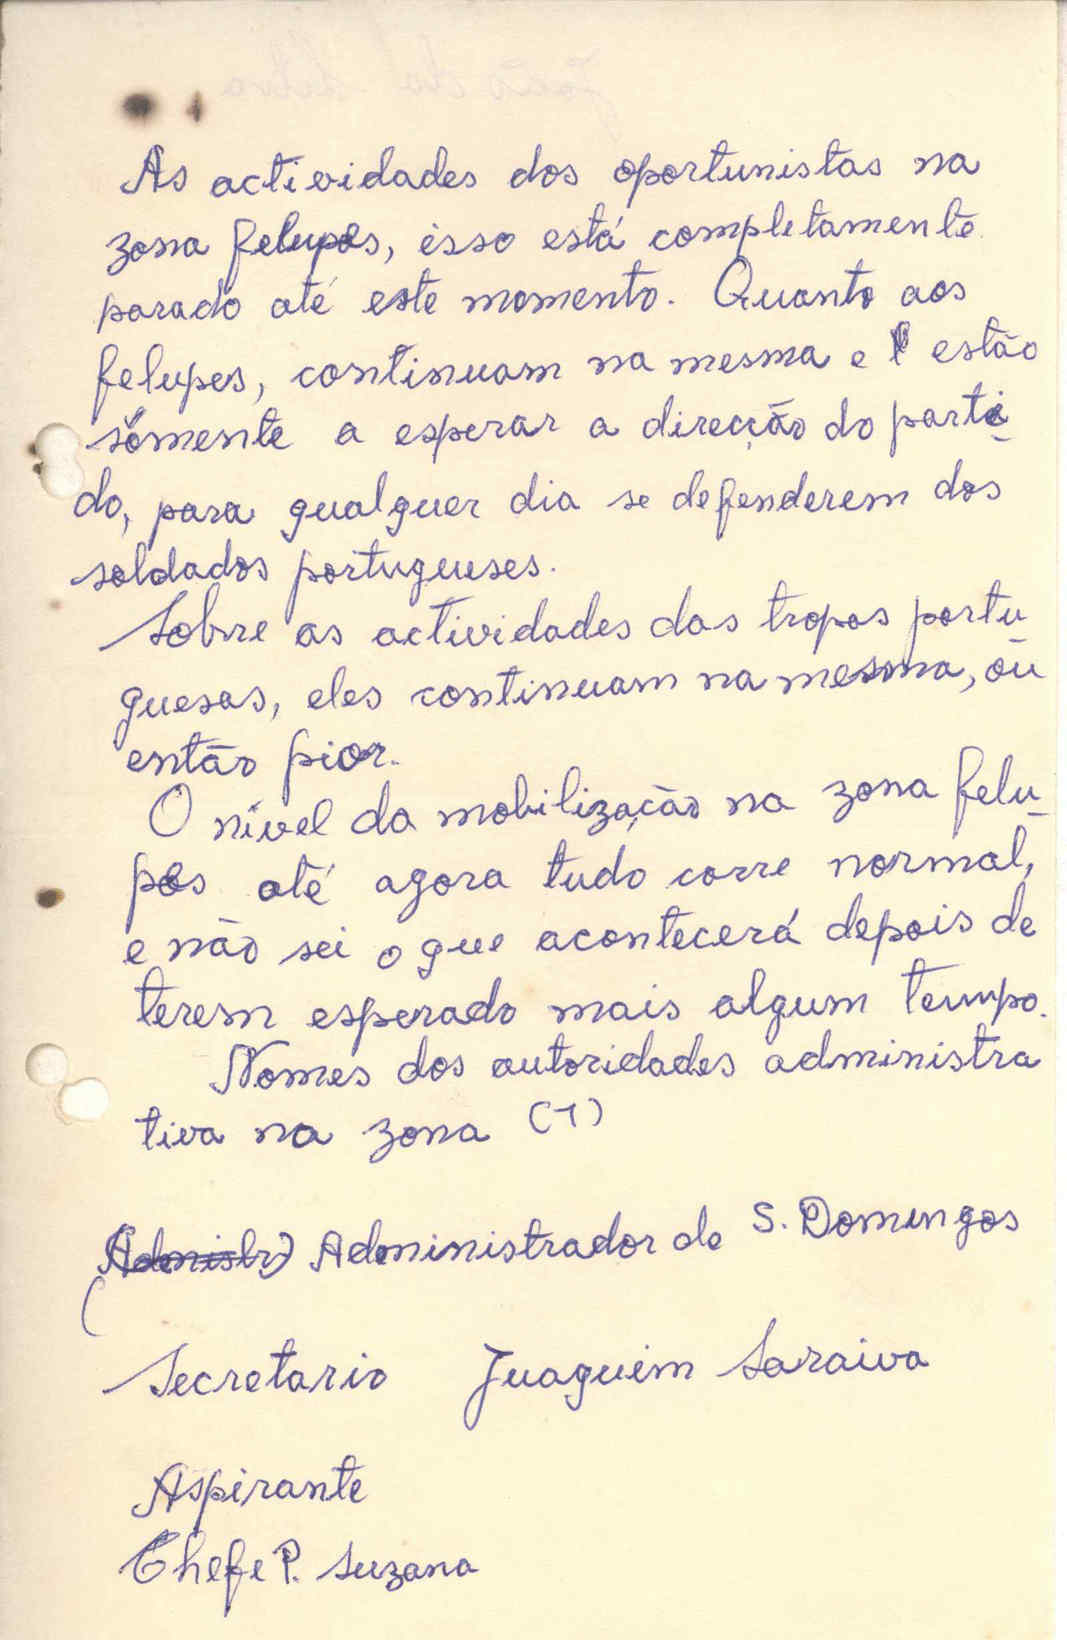 As actividades dos oportunistas na
zona felupes, isso está completamente
parado até este momento. Quanto aos
felupes, continuam na mesma e estão
sómente a esperar a direcção do parti-
do, para qualquer dia se defenderem dos
soldados portugueses.
Sobre as actividades das tropas portu-
guesas, eles continuam na mesma, ou
então pior.
O nível da mobilização na zona felu-
pes até agora tudo corre normal,
e não sei o que acontecerá depois de
terem esperado mais algum tempo.
Nomes dos autoridades administra
tiva na zona (1)
Administrador de S. Domingos
Secretario Juaquim Saraiva
Aspirante
Chefe P. Suzana